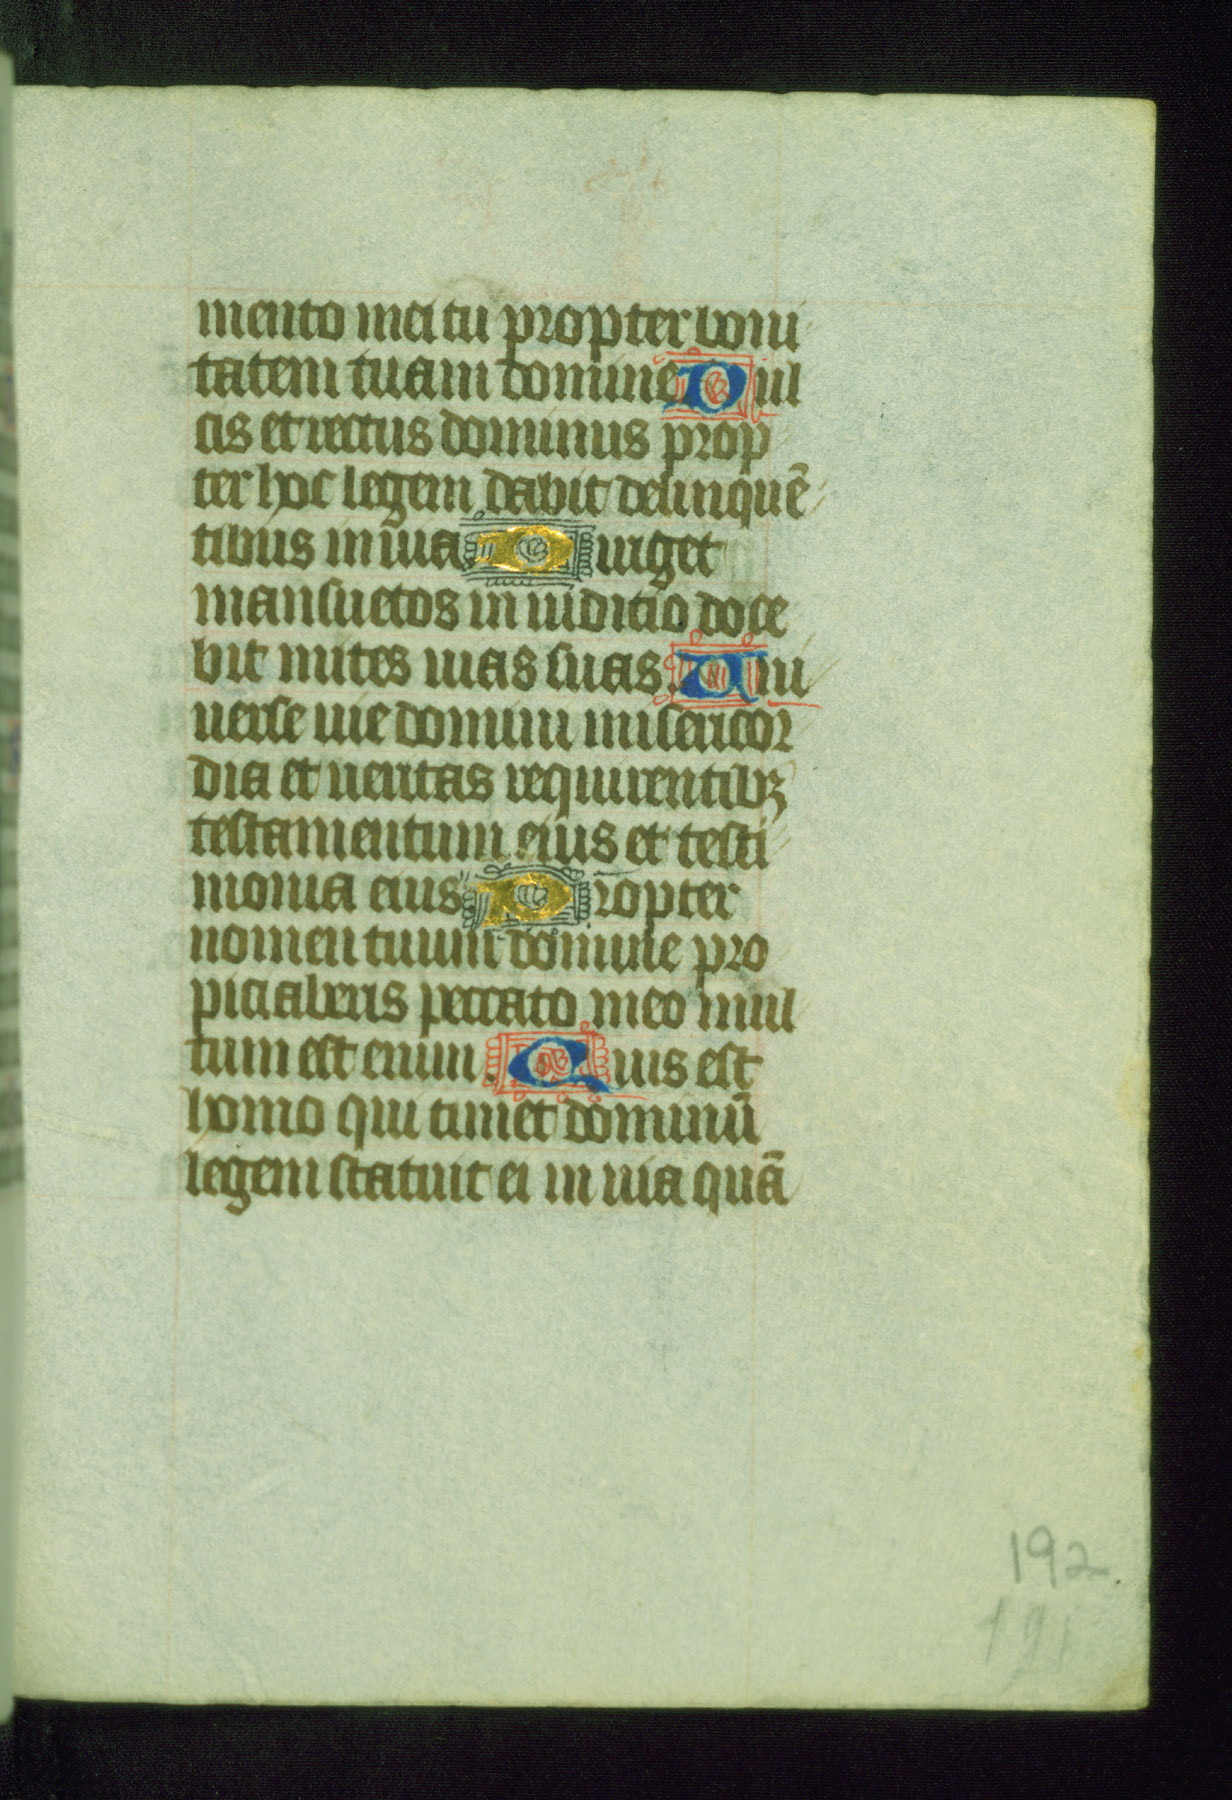 mento mei tu propter boni
tatem tuam domine Dul
cis et rectus dominus prop
ter hoc legem dabit delinquē
tibus in uia. Diriget
mansuetos in iuditio doce
bit mites uias suas. Uni
uerse uie domini misericor
dia et ueritas requirentibꝫ
testamentum eius et testi
monia eius. Propter
nomen tuum domine pro
piciaberis peccato meo mul
tum est enim. Quis est
homo qui timet dominū
legem statuit ei in uia quā
192
191